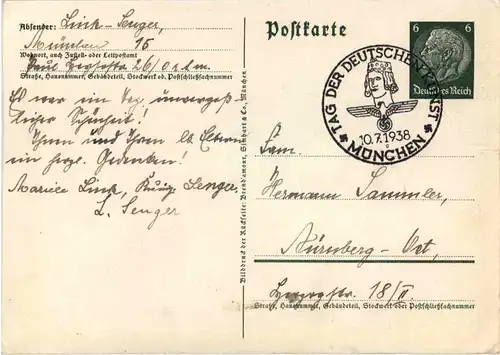 Absender: Link-Senger,
München 15
Wohnort, auch Zustell- oder Leitpostamt
Paul Heysestr 26/0 r.d.m.
Straße, Hausnummer, Gebäudeteil, Stockwerk od. Postschließfachnummer
Es war ein Tag unvergeß-
licher Schönheit!
Ihnen und Ihren lb. Eltern
ein herzl. Gedenken!
Link, Senger
L. Senger
Bilddruck der Rückseite: Brend'amour, Simhart & Co., München
Postkarte
6 6
Deutsches Reich
TAG DER DEUTSCHEN KUNST
10.7.1938
MÜNCHEN
Fam.
Hermann Sammler,
Nürnberg-Ost,
18/II
Straße, Hausnummer, Gebäudeteil, Stockwerk oder Postschließfachnummer